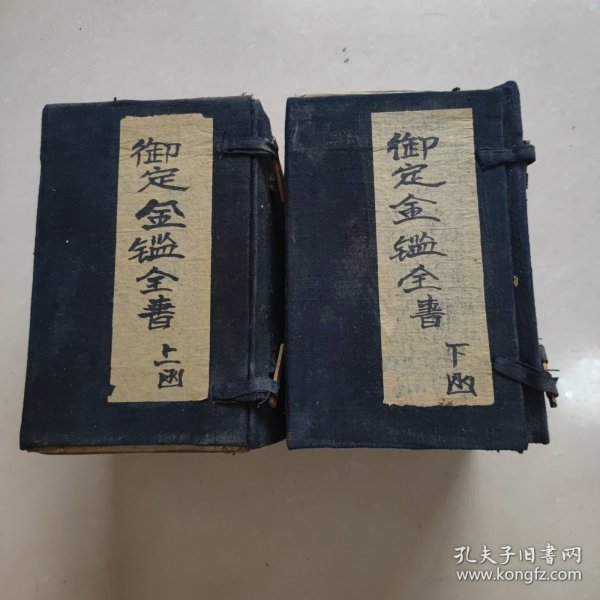 御定金鑑全書
上函
御定金鑑全書
下函
孔夫子旧书网
www.kongfz.com